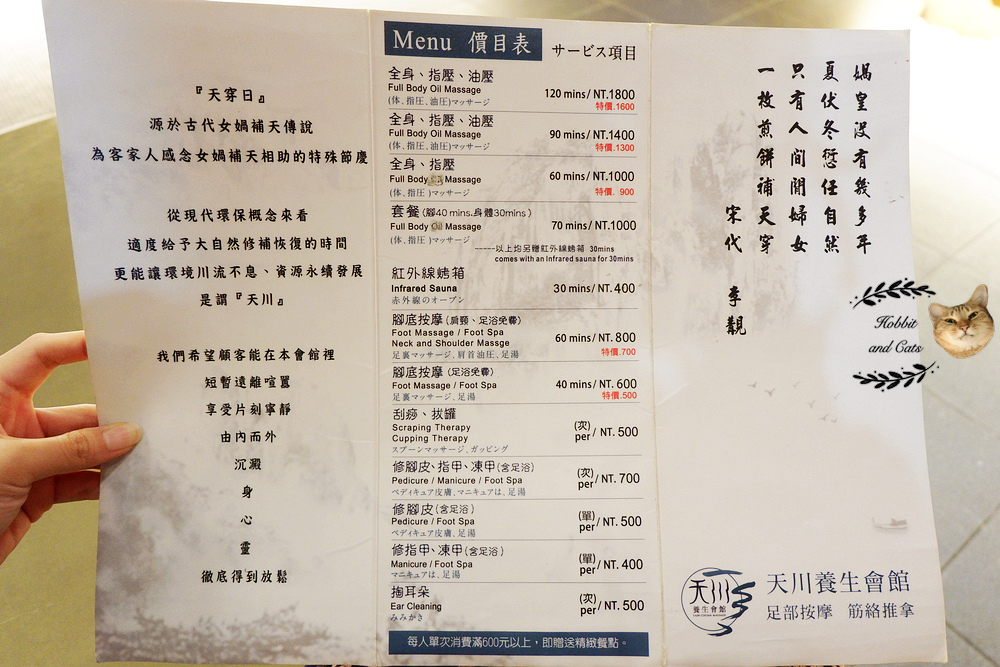 『天穿日』
源於古代女媧補天傳說
為客家人感念女媧補天相助的特殊節慶
從現代環保概念來看
適度給予大自然修補恢復的時間
更能讓環境川流不息、資源永續發展
是謂『天川』
我們希望顧客能在本會館裡
短暫遠離喧囂
享受片刻寧靜
由內而外
沉澱
身
心
靈
徹底得到放鬆
Menu 價目表 サービス項目
全身、指壓、油壓
Full Body Oil Massage
(体、指圧、油圧)マッサージ
120 mins/ NT.1800
特價.1600
全身、指壓、油壓
Full Body Oil Massage
(体、指圧、油圧)マッサージ
90 mins/ NT.1400
特價.1300
全身、指壓
Full Body Massage
(体、指圧 )マッサージ
60 mins/ NT.1000
特價. 900
套餐(腳40 mins.身體30mins)
Full Body Oil Massage
(体、指圧 )マッサージ
70 mins/ NT.1000
-----以上均另贈紅外線烤箱 30mins
comes with an Infrared sauna for 30mins
紅外線烤箱
Infrared Sauna
赤外線のオーブン
30 mins/ NT. 400
腳底按摩(肩頸、足浴免費)
Foot Massage / Foot Spa
Neck and Shoulder Massge
足裏マッサージ、肩首油圧、足湯
60 mins/ NT. 800
特價.700
腳底按摩(足浴免費)
Foot Massage / Foot Spa
足裏マッサージ、足湯
40 mins/ NT. 600
特價.500
刮痧、拔罐
Scraping Therapy
Cupping Therapy
スプーンマッサージ、ガッピング
(次)
per/ NT. 500
修腳皮、指甲、凍甲(含足浴)
Pedicure / Manicure / Foot Spa
ペディキュア皮膚、マニキュアは、足湯
(次)
per/ NT. 700
修腳皮(含足浴)
Pedicure / Foot Spa
ペディキュア皮膚、足湯
(單)
per/ NT. 500
修指甲、凍甲(含足浴)
Manicure / Foot Spa
マニキュアは、足湯
(單)
per/ NT. 400
掏耳朵
Ear Cleaning
みみかき
(次)
per/ NT. 500
每人單次消費滿600元以上，即贈送精緻餐點。
媧皇沒有幾多年
夏伏冬愆任自然
只有人間閒婦女
一枚煎餅補天穿
宋代 李覯
Hobbit
and Cats
天川
養生會館
天川養生會館
足部按摩 筋絡推拿